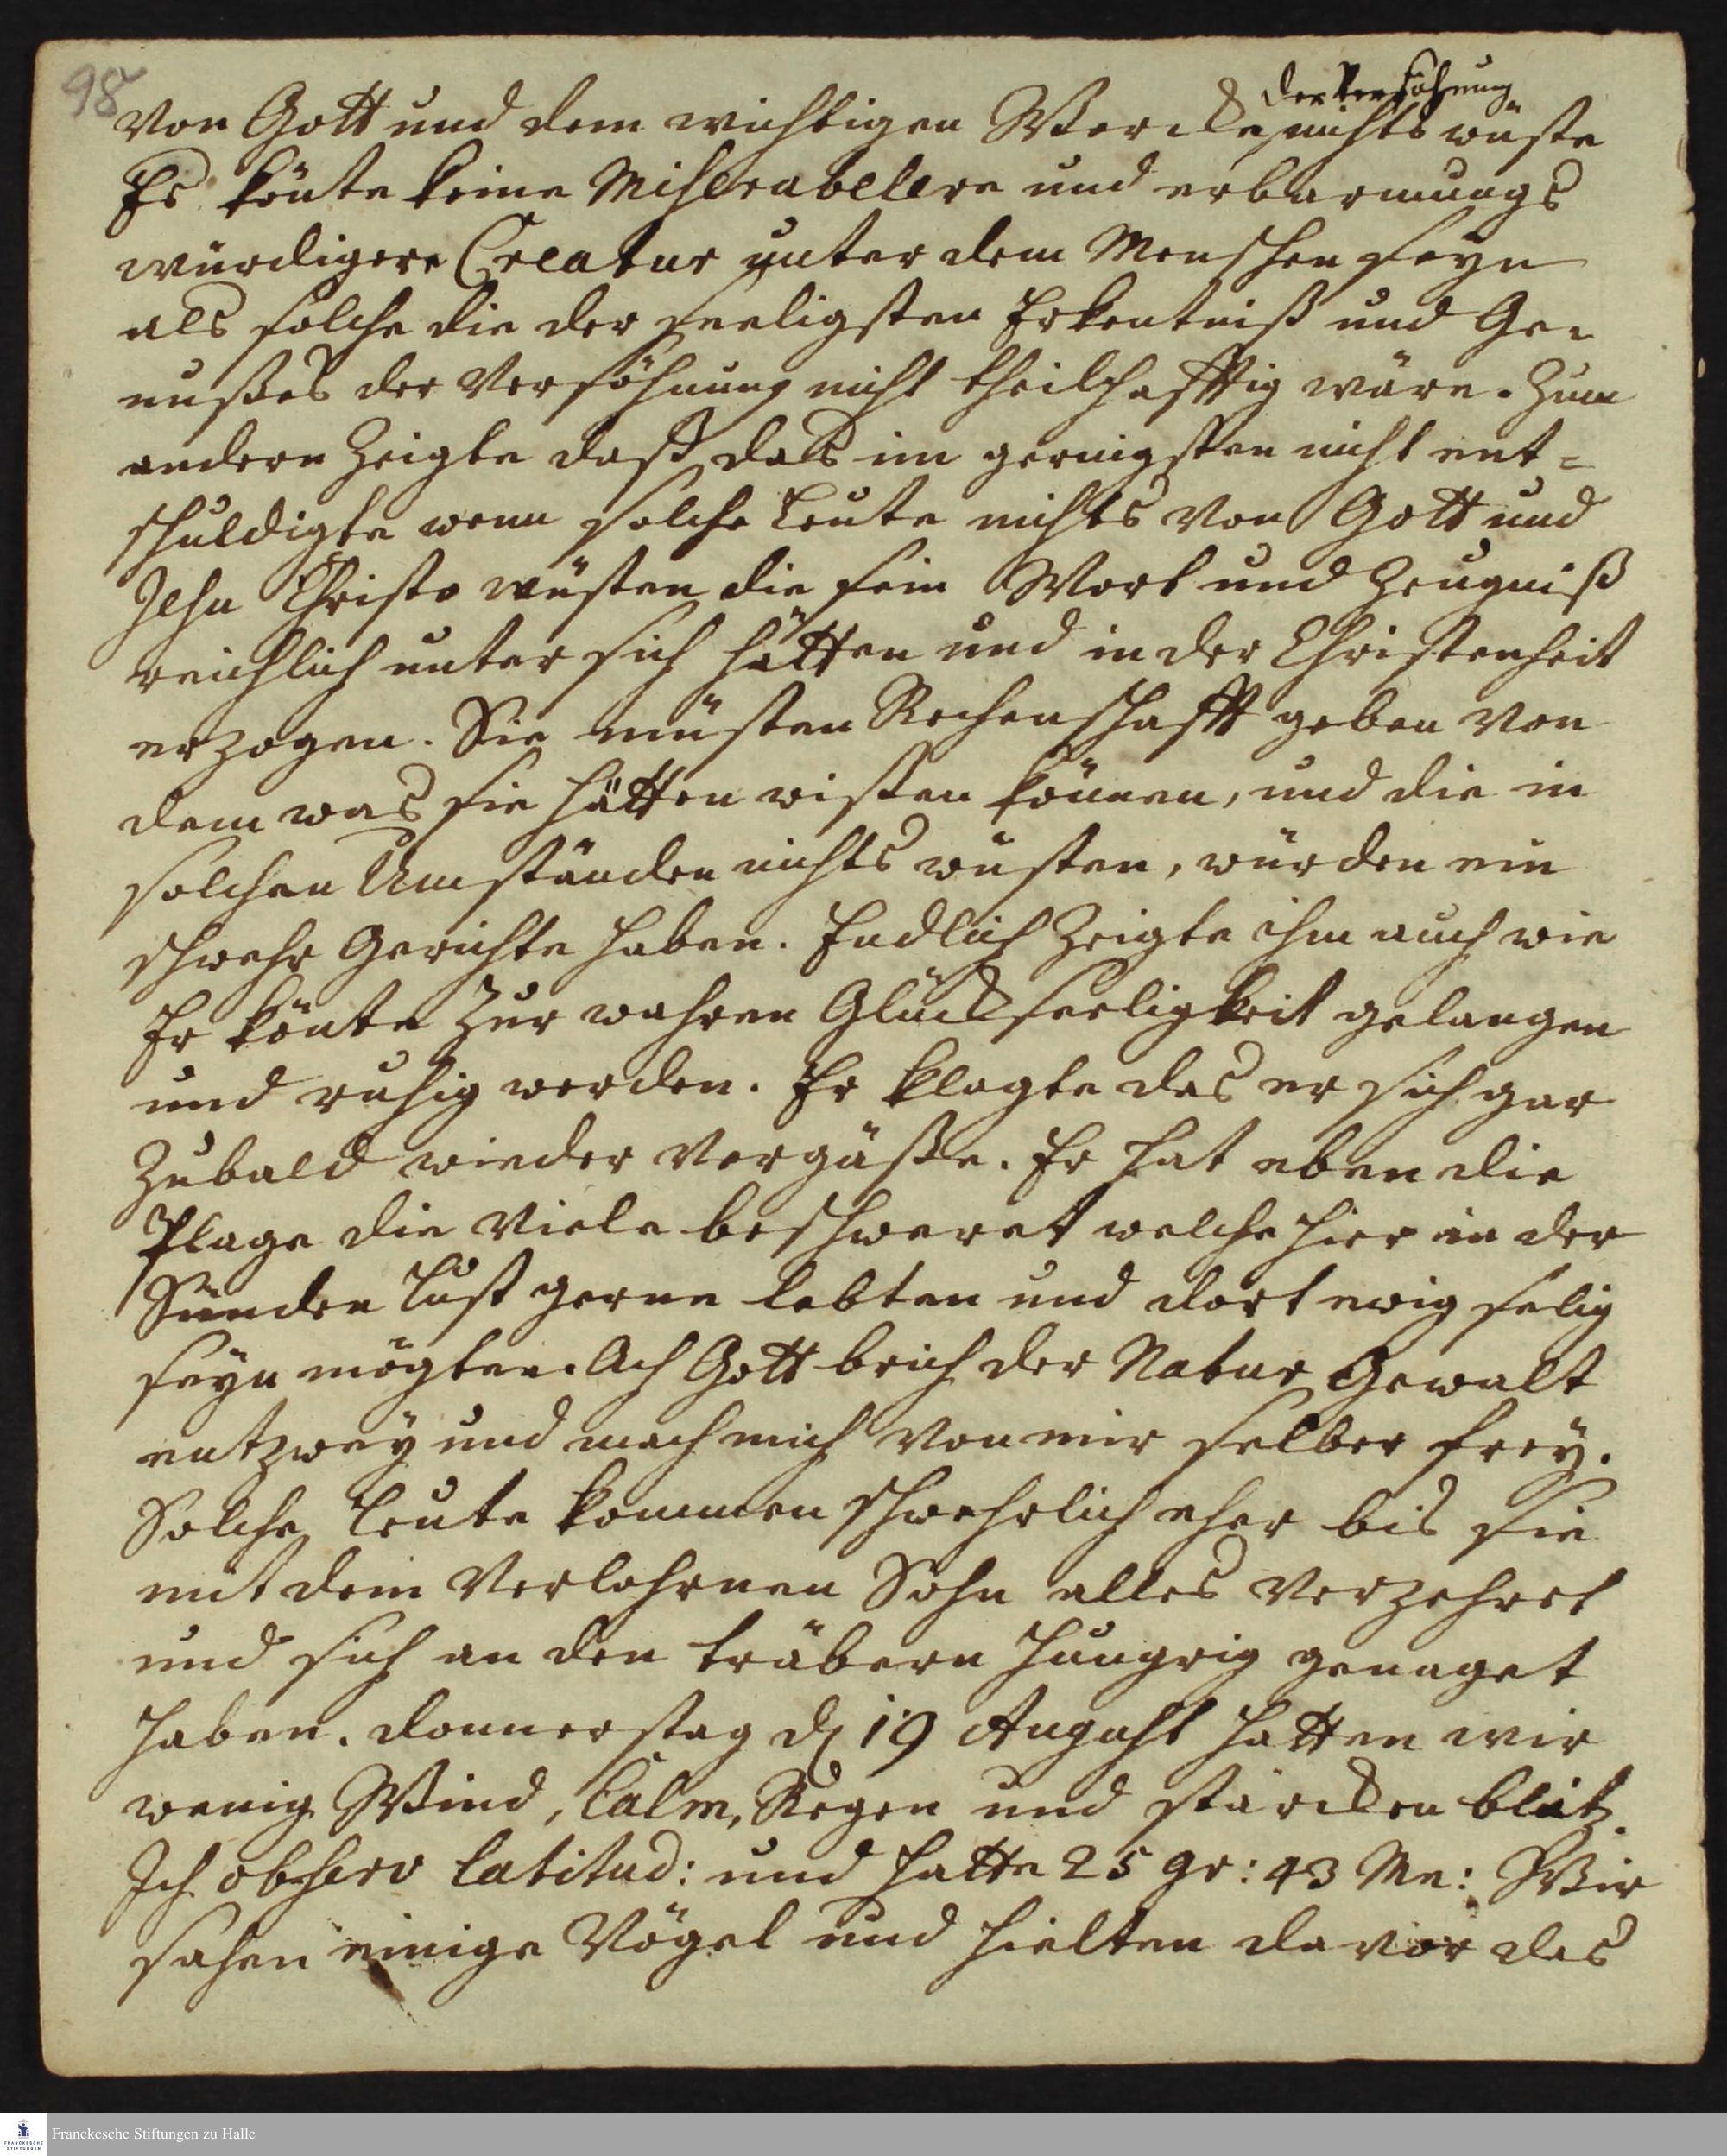 98
der Versöhnung
Von Gott und dem wichtigen Wercke nichts wüste
Es könte keine Miserabelere und erbarmungs
würdigere Creatur unter dem Menschen seyn
als solche die der seeligsten Erkentniß und Ge=
nußes der Versöhnung nicht theilhafftig wäre. Zum
andern Zeigte daß das im geringsten nicht ent=
schuldigte wenn solche Leute nichts Von Gott und
Jesu Christo wüsten die sein Wort und Zeugniß
reichlich unter sich hätten und in der Christenheit
erzogen. Sie müsten Rechenschafft geben Von
dem was sie hätten wißen können, und die in
solchen Umständen nichts wüsten, würden ein
schwehr Gerichte haben. Endlich Zeigte ihm auch wie
Er könte Zur wahren Glückseeligkeit gelangen
und ruhig werden. Er klagte das er sich gar
Zubald wieder Vergäße. Er hat eben die
Plage die Viele beschweret welche hier in der
Sünden Lust gerne lebten und dort ewig selig
seyn mögten. Ach Gott brich der Natur Gewalt
entzwey und mach mich Von mir selber frey.
Solche Leute kommen schwehrlich eher bis sie
mit dem Verlohrnen Sohn alles Verzehret
und sich an den träbern hungrig genaget
haben. Donnerstag d 19 August hatten wir
wenig Wind, Calm, Regen und starcken blitz.
Ich observ latitud: und hatte 25 gr: 43 Mn: Wir
sahen einige Vögel und hielten davor das
FRANCKESCHE STIFTUNGEN
Franckesche Stiftungen zu Halle